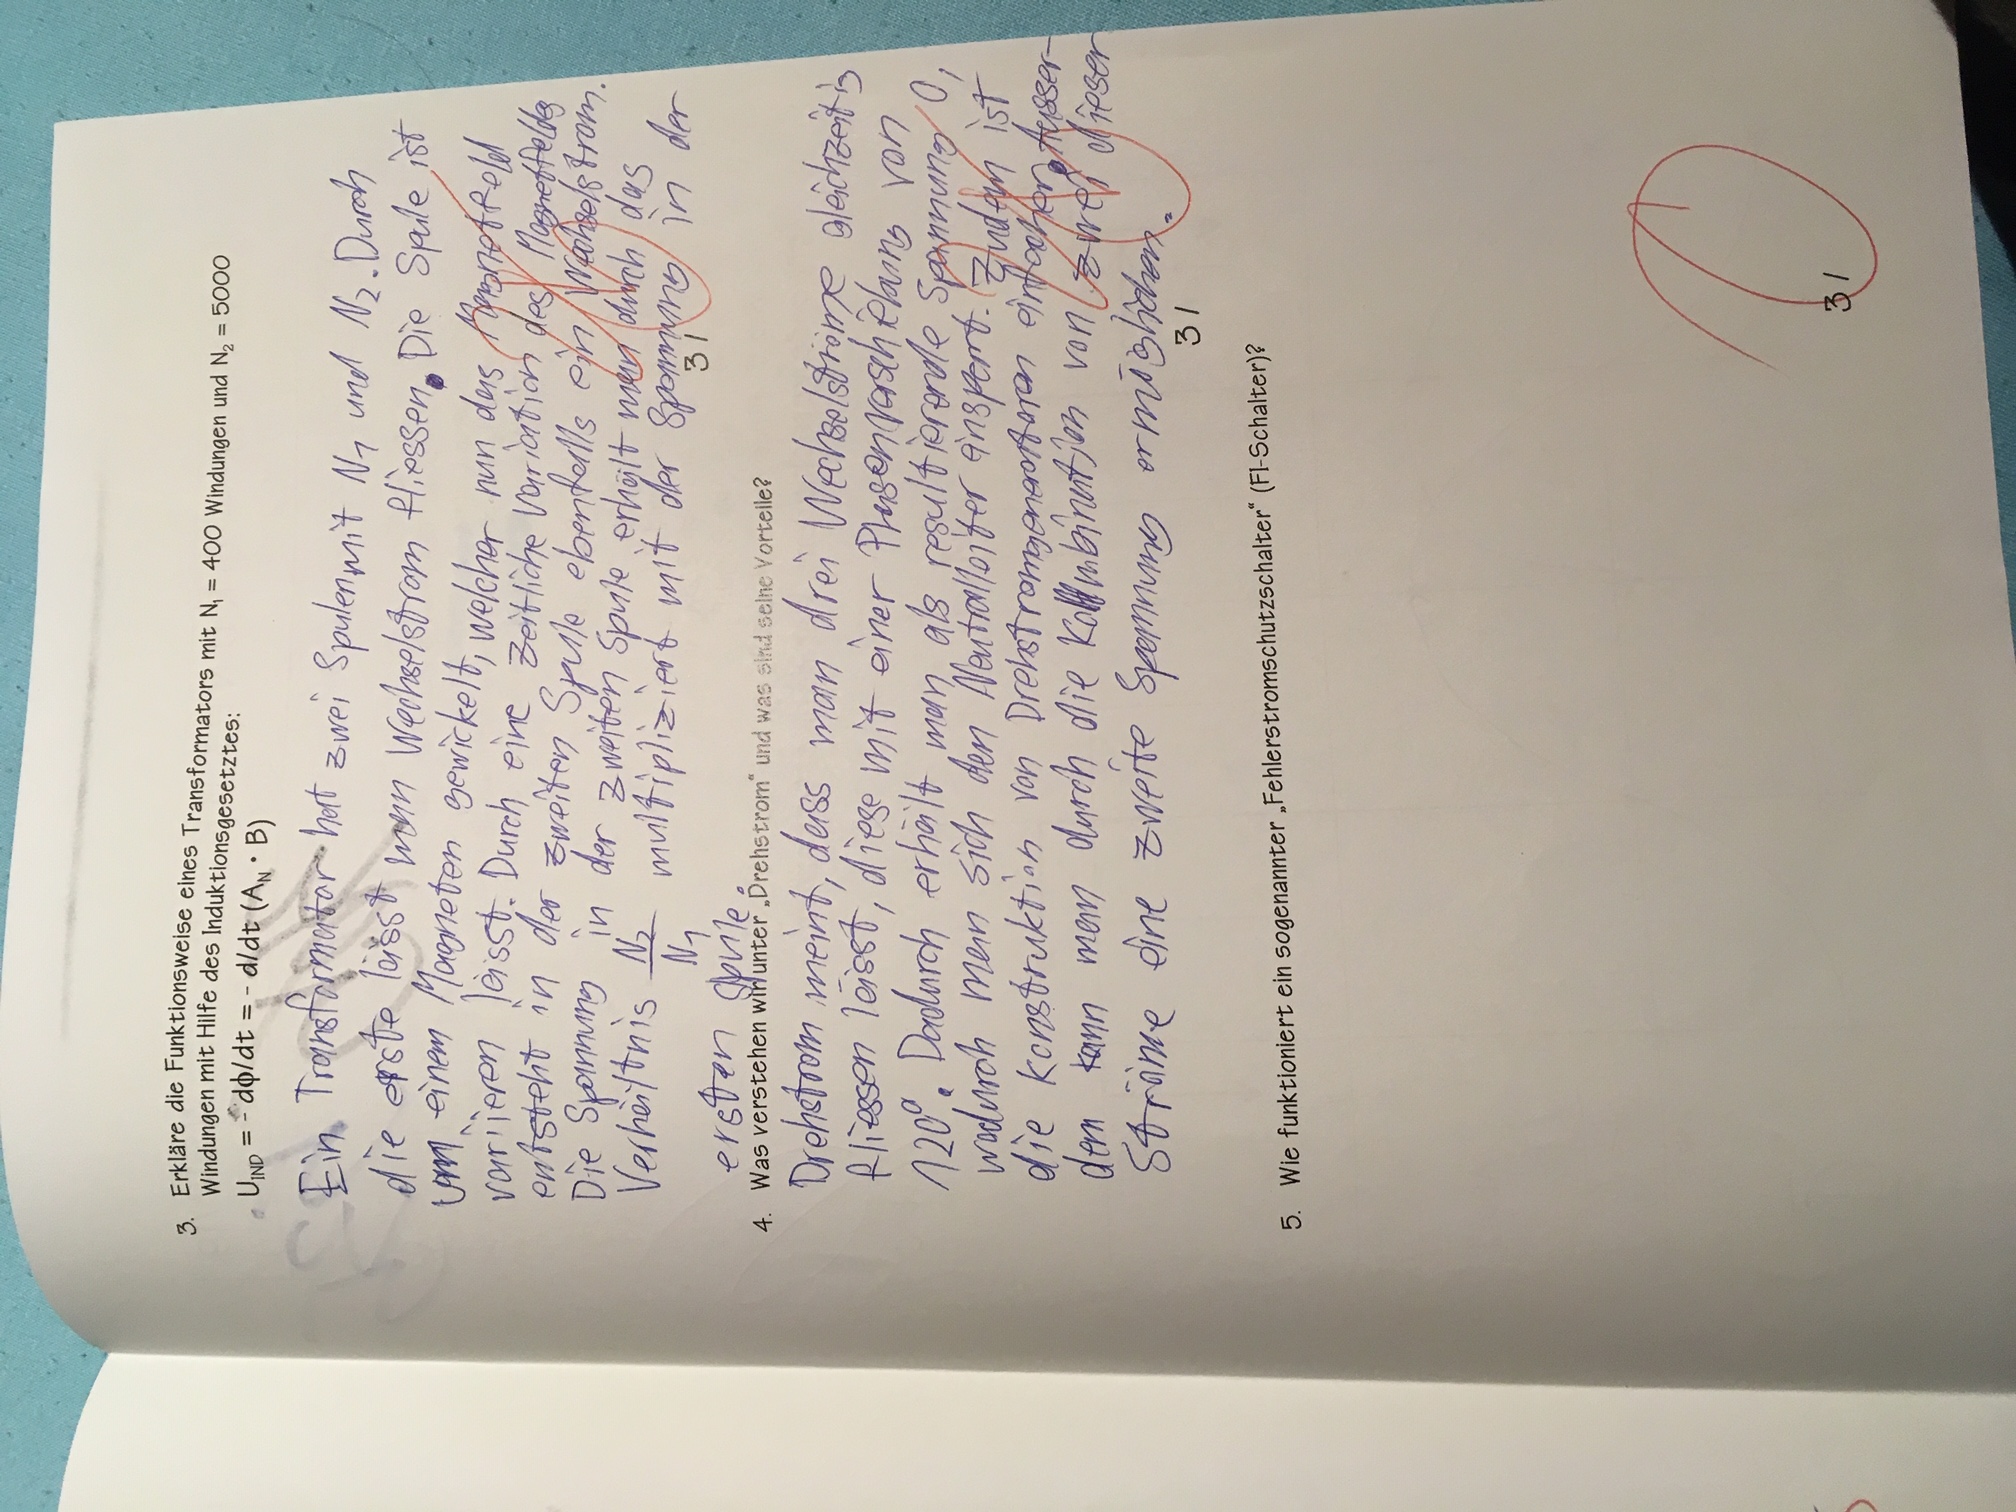 3. Erkläre die Funktionsweise eines Transformators mit N₁ = 400 Windungen und N₂ = 5000
Windungen mit Hilfe des Induktionsgesetztes:
U_IND = - dϕ/dt = - d/dt (A_N · B)
Ein Transformator hat zwei Spulen mit N₁ und N₂. Durch
die erste lässt man Wechselstrom fliessen. Die Spule ist
um einem Magneten gewickelt, welcher nun das Magnetfeld
variieren lässt. Durch eine zeitliche Variation des Magnetfeldes
entsteht in der zweiten Spule ebenfalls ein Wechselstrom.
Die Spannung in der zweiten Spule erhält man durch das
Verhältnis N₂/N₁ multipliziert mit der Spannung in der
ersten Spule.
3 /
4. Was verstehen wir unter „Drehstrom“ und was sind seine Vorteile?
Drehstrom meint, dass man drei Wechselströme gleichzeitig
fliessen lässt, diese mit einer Phasenverschiebung von
120°. Dadurch erhält man als resultierende Spannung 0,
wodurch man sich den Neutralleiter einspart. Zudem ist
die Konstruktion von Drehstromgeneratoren einfacher. Ausser-
dem kann man durch die Kombination von zwei dieser
Ströme eine zweite Spannung ermöglichen.
3 /
5. Wie funktioniert ein sogenannter „Fehlerstromschutzschalter“ (FI-Schalter)?
0
3 /